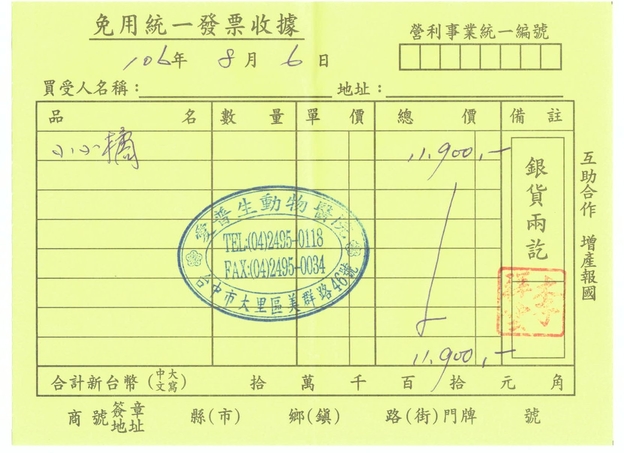 免用統一發票收據
營利事業統一編號
106年 8月 6日
買受人名稱： 地址：
品名 數量 單價 總價 備註
小小橘 11,900,-
銀貨兩訖
互助合作 增產報國
愛普生動物醫院
TEL:(04)2495-0118
FAX:(04)2495-0034
台中市大里區美群路46號
11,900,-
合計新台幣(中文大寫) 拾 萬 千 百 拾 元 角
商號簽章地址 縣(市) 鄉(鎮) 路(街)門牌 號